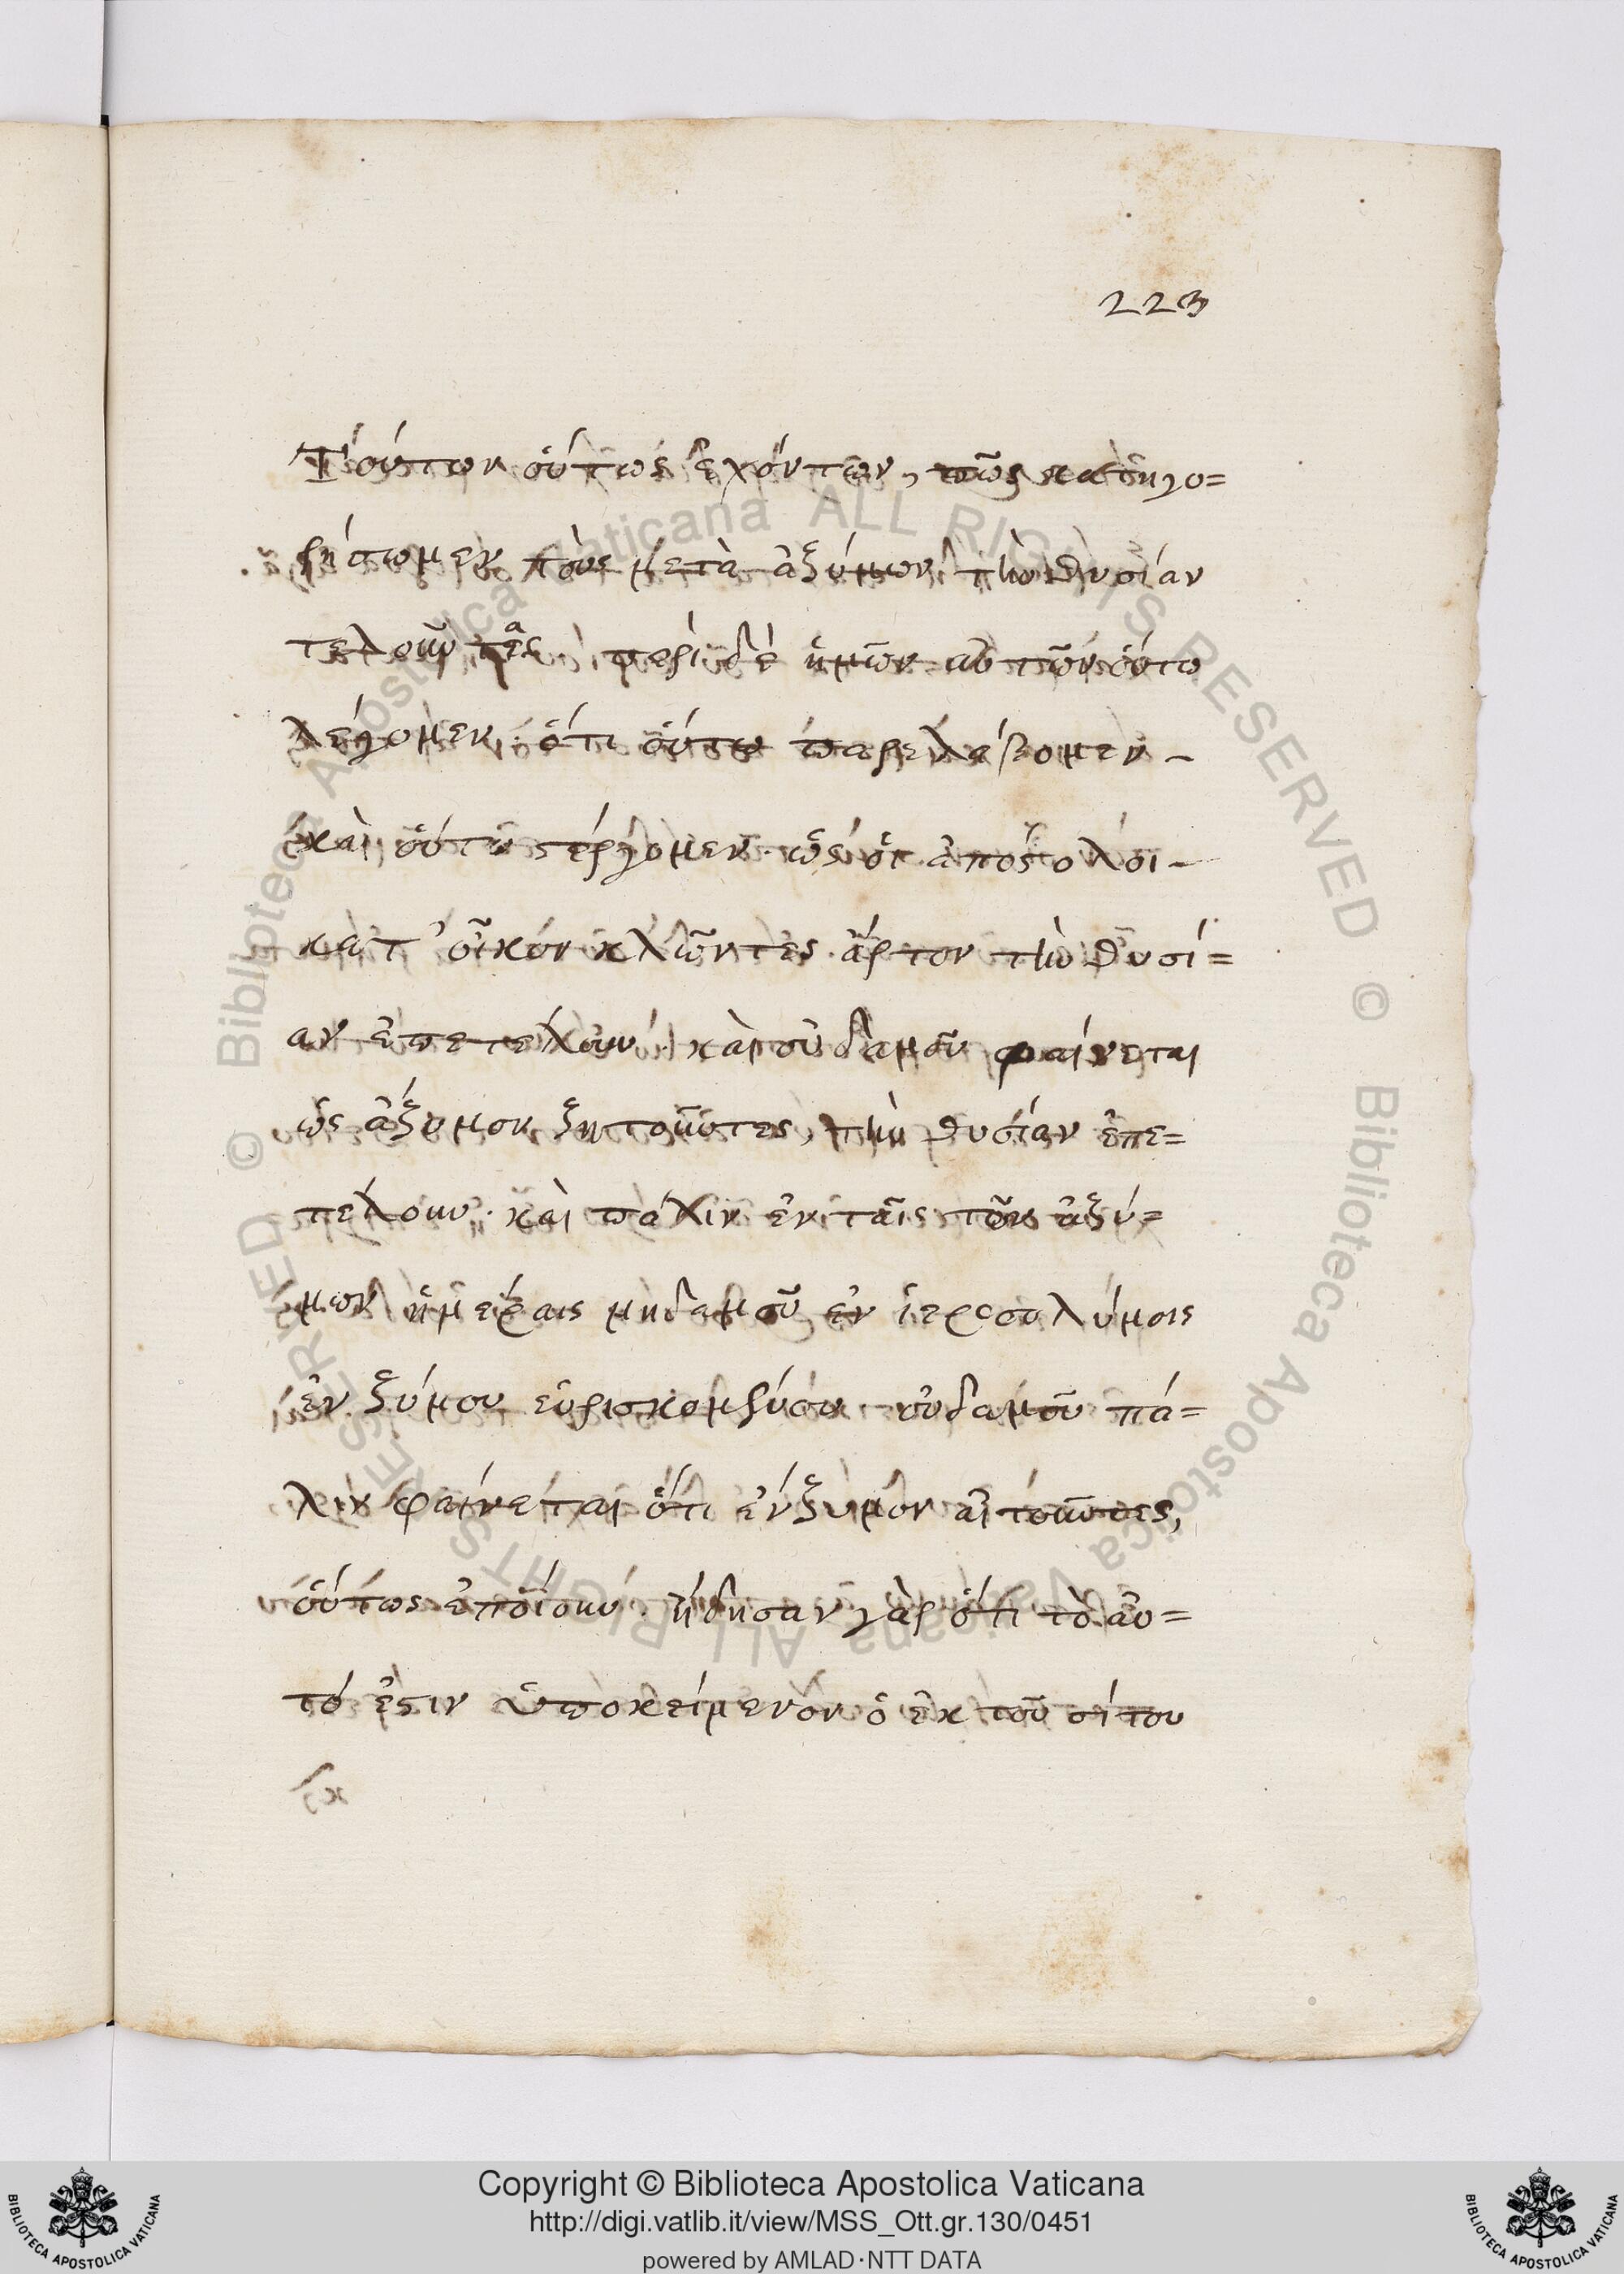 223
Τούτων οὕτως ἐχόντων, πῶς κατηγο=
ρήσωμεν τοὺς μετὰ ἀζύμων τὴν θυσίαν
τελοῦντας. περὶ δὲ ἡμῶν αὐτῶν οὕτω
λέγομεν. ὅτι οὕτω παρελάβομεν –
καὶ οὕτω στέργομεν. ὡς οἱ ἀπόστολοι –
κατ' οἶκον κλῶντες ἄρτον τὴν θυσί=
αν ἐπετέλουν. καὶ οὐδαμοῦ φαίνεται
ὡς ἄζυμον ζητοῦντες, τὴν θυσίαν ἐπε=
τέλουν. καὶ πάλιν ἐν ταῖς τῶν ἀζύ=
μων ἡμέραις μηδαμοῦ ἐν ἱεροσολύμοις
ἐνζύμου εὑρισκομένου οὐδαμοῦ πά=
λιν φαίνεται ὅτι ἔνζυμον αἰτοῦντες,
οὕτως ἐποίουν. ᾔδησαν γὰρ ὅτι τὸ αὐ=
τό ἐστιν ὑποκείμενον ὁ ἐκ τοῦ σίτου
Copyright © Biblioteca Apostolica Vaticana
http://digi.vatlib.it/view/MSS_Ott.gr.130/0451
powered by AMLAD·NTT DATA
BIBLIOTECA APOSTOLICA VATICANA
BIBLIOTECA APOSTOLICA VATICANA
© Biblioteca Apostolica Vaticana ALL RIGHTS RESERVED © Biblioteca Apostolica Vaticana ALL RIGHTS RESERVED